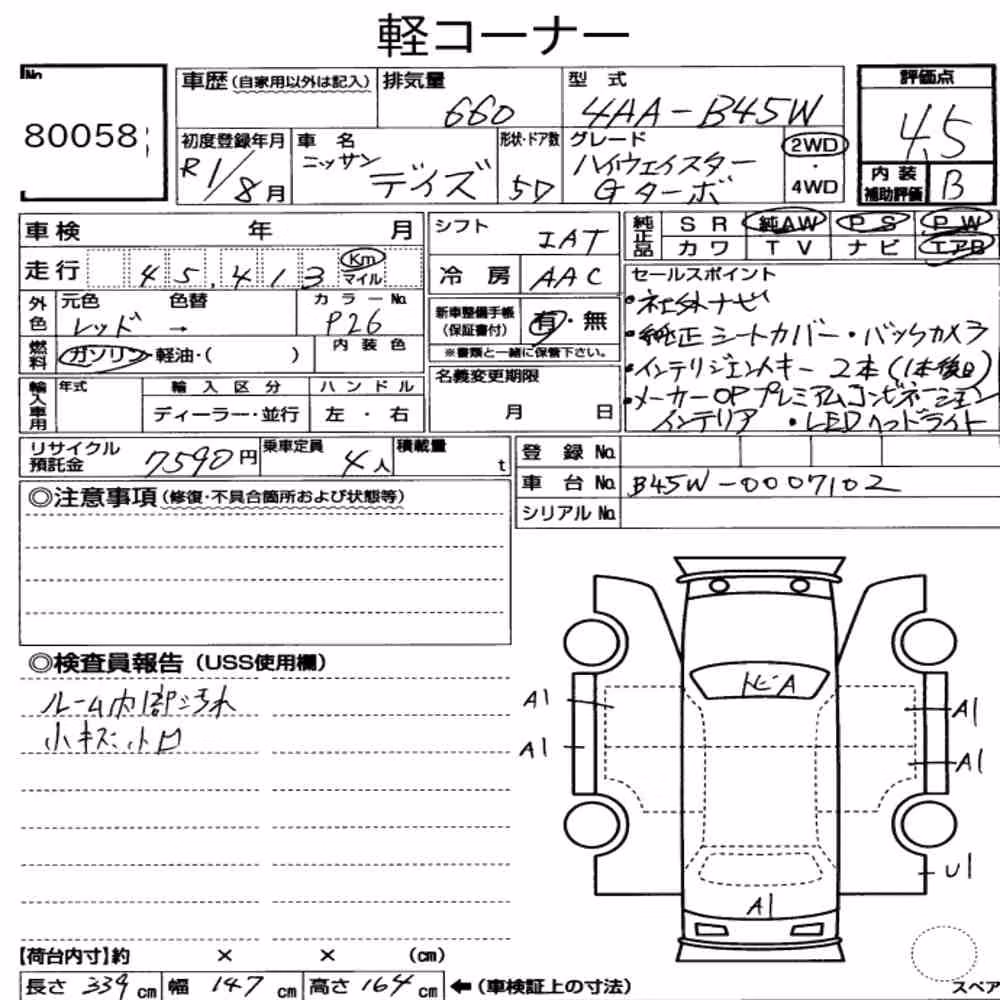 軽コーナー
No.
80058
車歴(自家用以外は記入)
排気量
660
型式
4AA-B45W
評価点
4.5
初度登録年月
R1/8月
車名
ニッサン
デイズ
形状・ドア数
5D
グレード
ハイウェイスター
Gターボ
2WD
・
4WD
内装
補助評価
B
車検 年 月
走行 45,413 Km
マイル
シフト
IAT
冷房
AAC
純正品
SR 純AW PS PW
カワ TV ナビ エアB
セールスポイント
・社外ナビ
・純正シートカバー・バックカメラ
・インテリジェントキー 2本(1本後日)
・メーカーOPプレミアムコンビネーション
インテリア ・LEDヘッドライト
外色
元色 色替
レッド →
カラーNo.
P26
燃料
ガソリン・軽油・( )
内装色
新車整備手帳
(保証書付)
有・無
※書類と一緒に保管下さい。
名義変更期限
月 日
輸入車用
年式
輸入区分
ディーラー・並行
ハンドル
左・右
リサイクル
預託金
7590円
乗車定員
4人
積載量
t
登録No.
車台No. B45W-0007102
シリアルNo.
◎注意事項(修復・不具合箇所および状態等)
◎検査員報告(USS使用欄)
ルーム内部汚れ
小キズ小凹
トビA
A1
A1
A1
A1
U1
A1
【荷台内寸】約 × × (cm)
長さ 339cm 幅 147cm 高さ 164cm ←(車検証上の寸法)
スペア